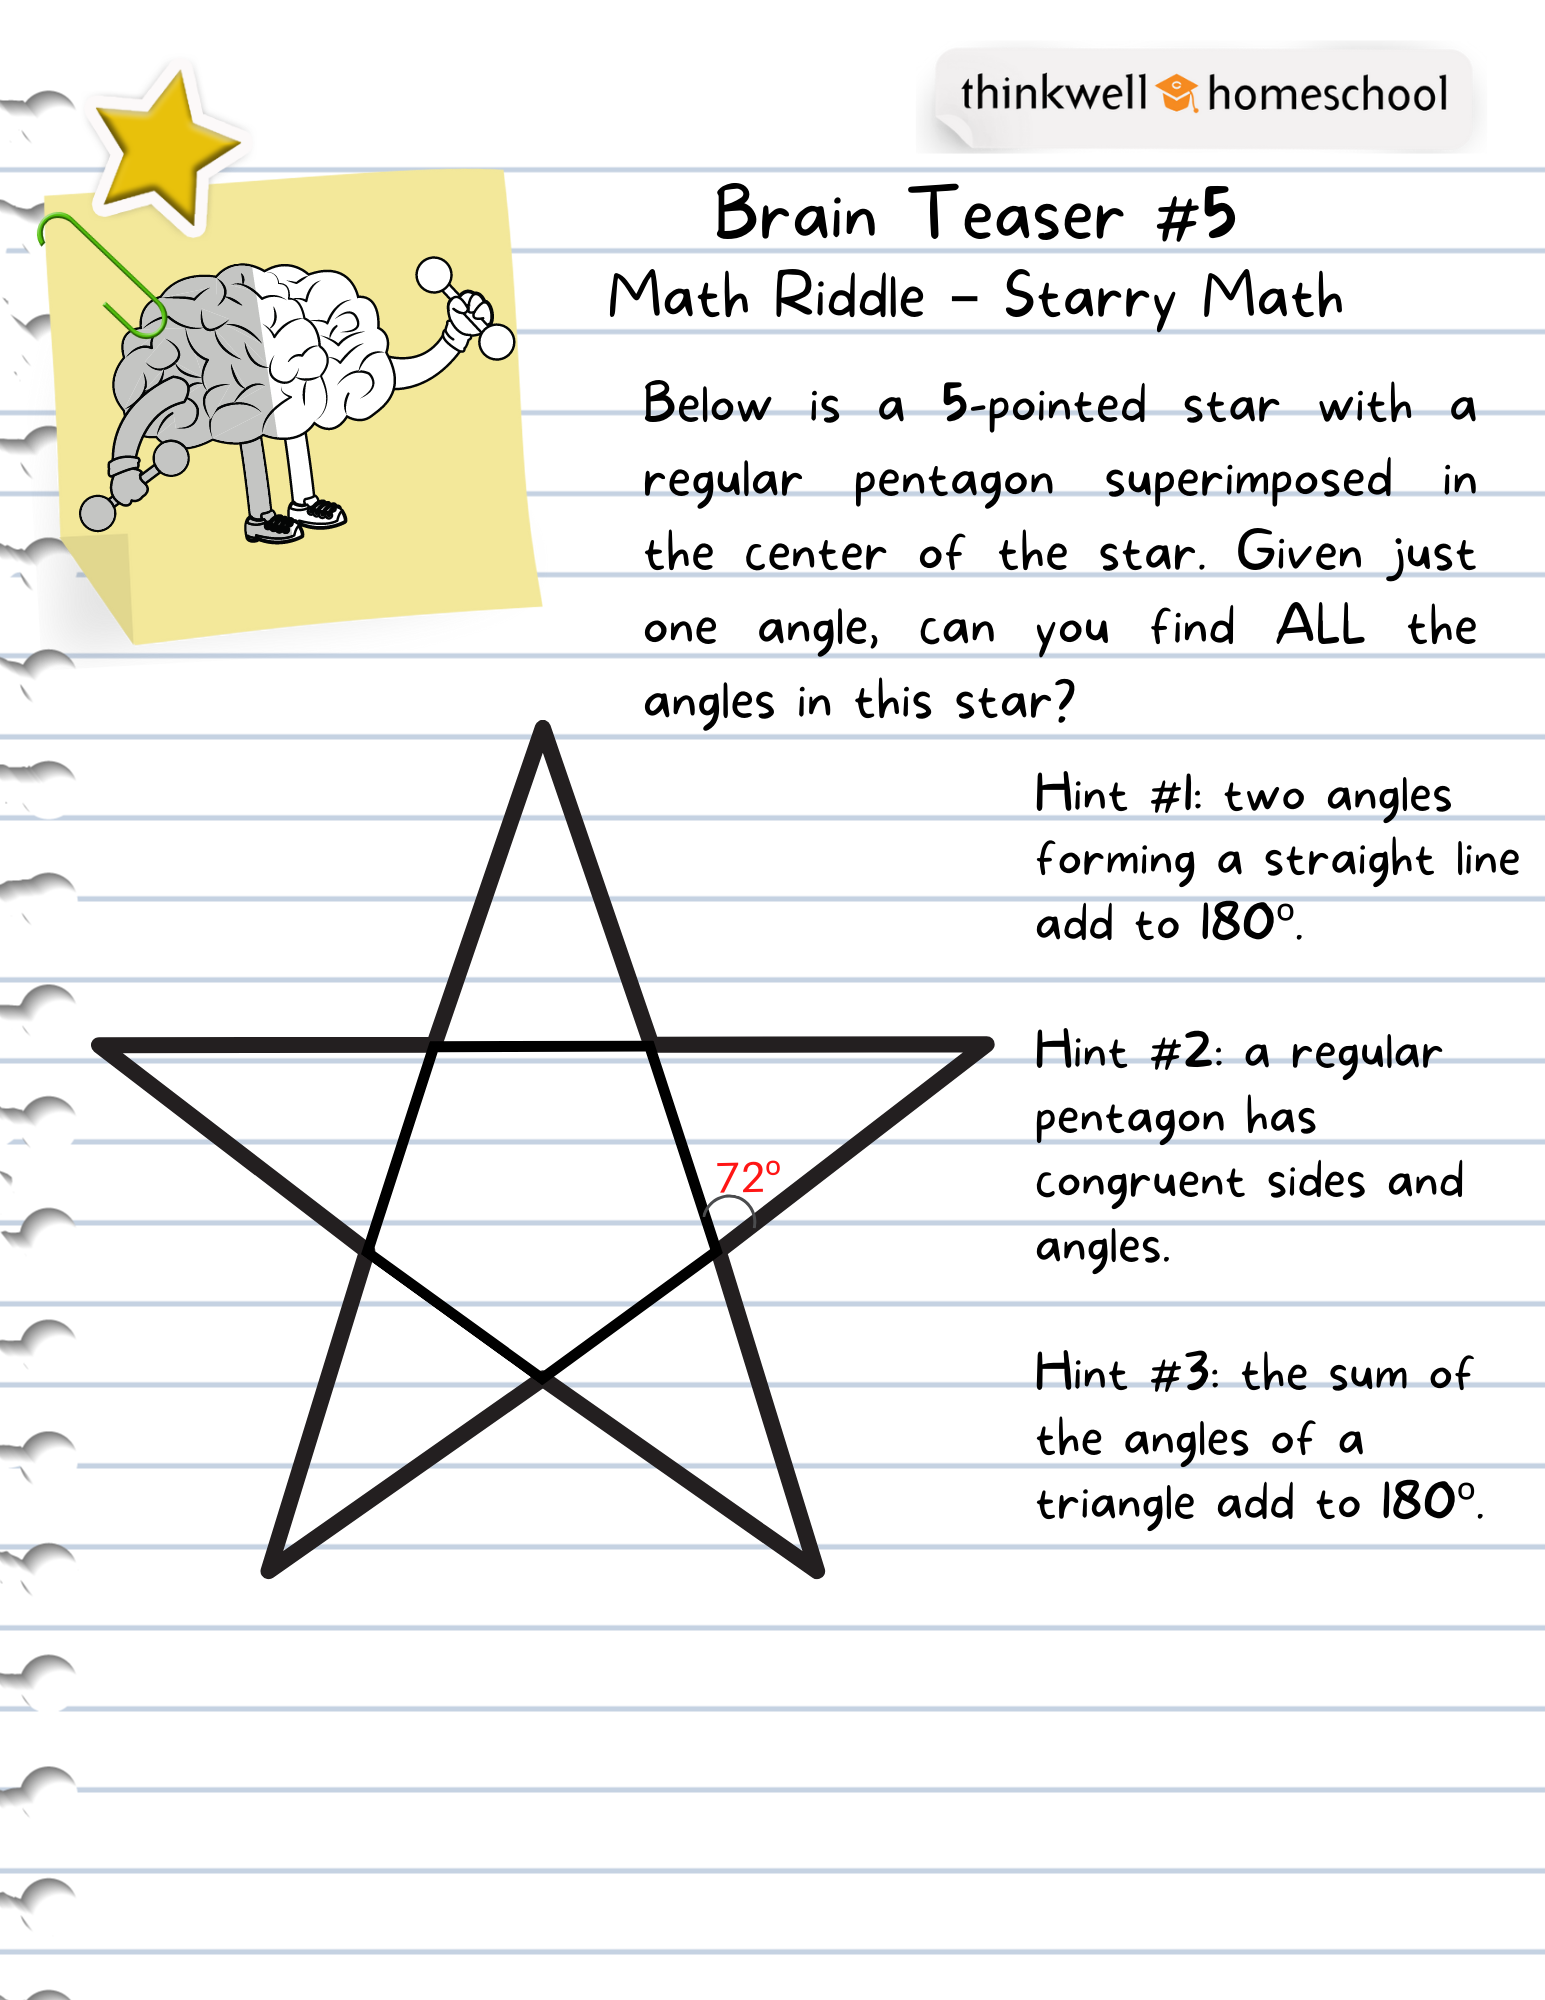 thinkwell homeschool
Brain Teaser #5
Math Riddle - Starry Math
Below is a 5-pointed star with a
regular pentagon superimposed in
the center of the star. Given just
one angle, can you find ALL the
angles in this star?
Hint #1: two angles
forming a straight line
add to 180º.
Hint #2: a regular
pentagon has
congruent sides and
angles.
Hint #3: the sum of
the angles of a
triangle add to 180º.
72º